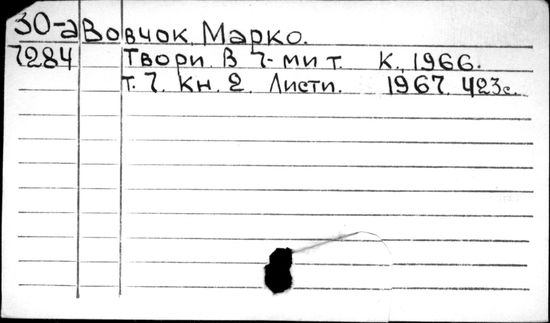 30-а Вовчок, Марко.
7284 Твори. В 7-ми т. К., 1966.
т. 7. Кн. 2. Листи. 1967. 423с.